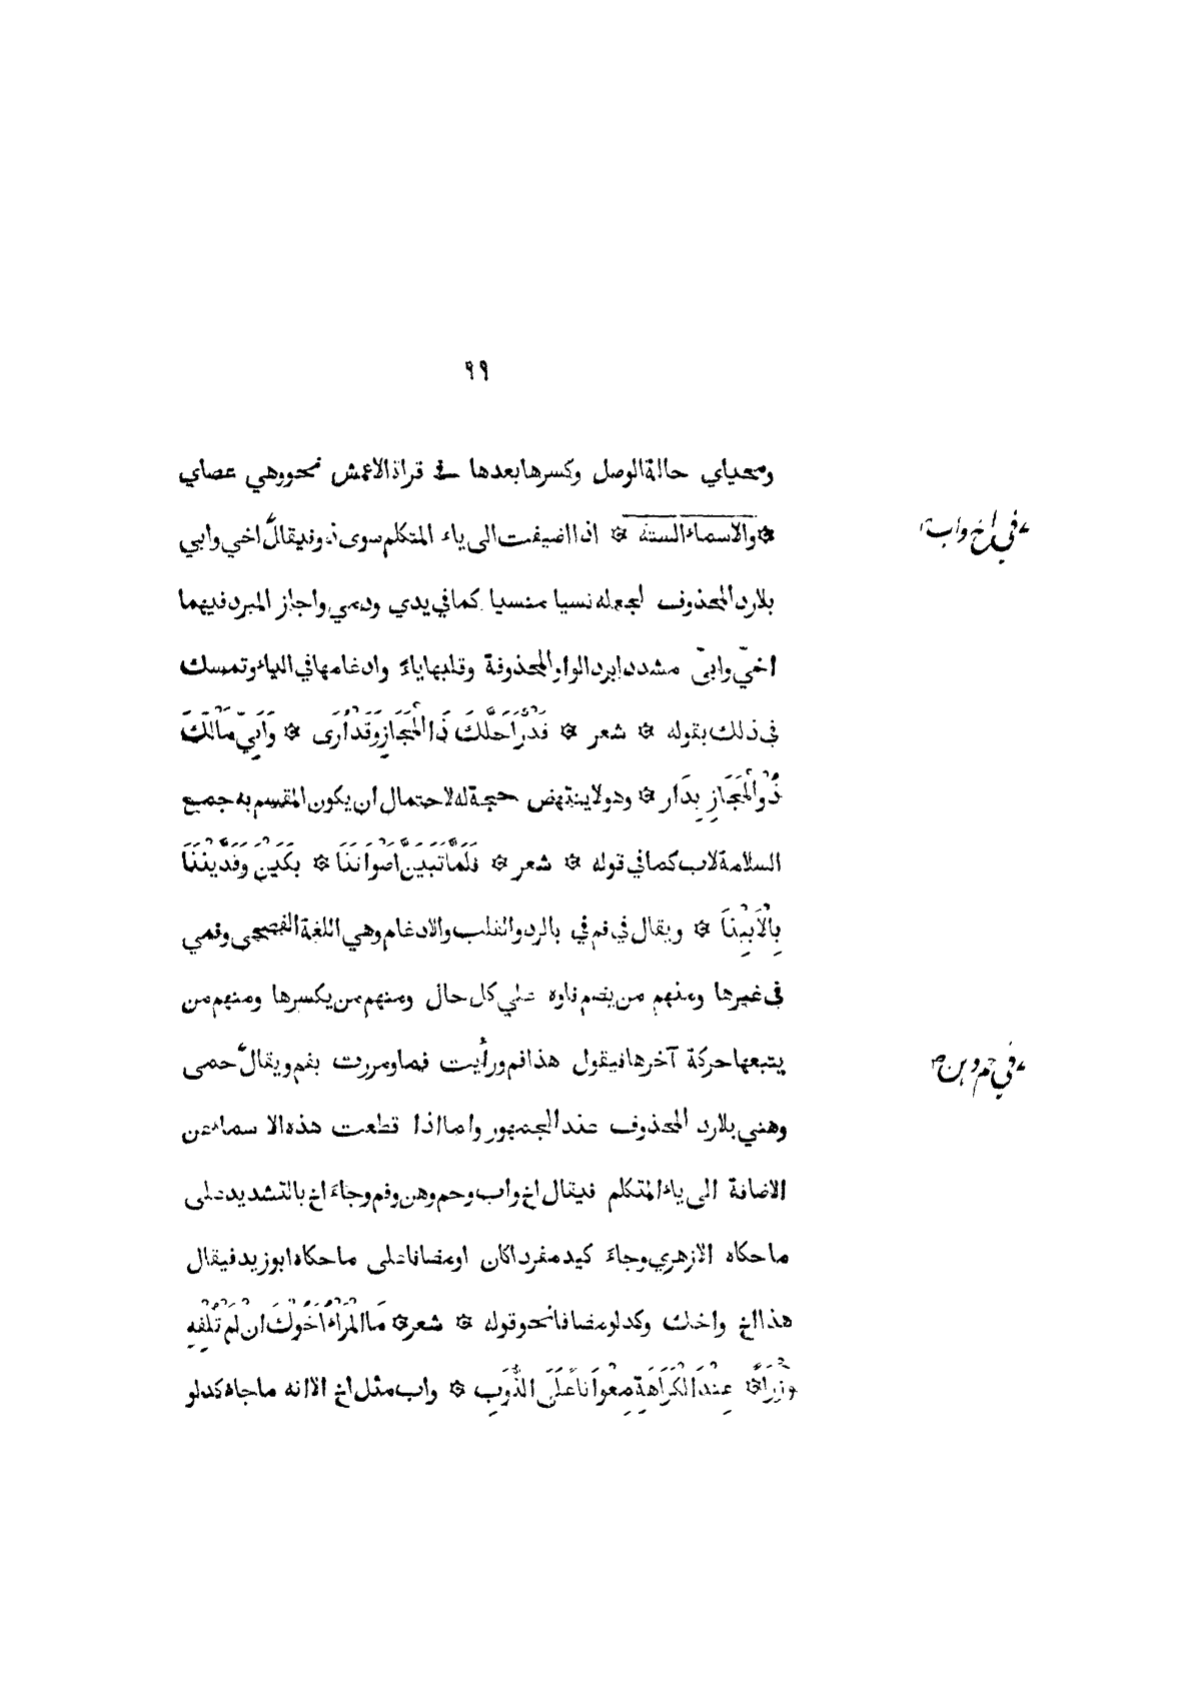 ٩٩
ومحياي حالة الوصل وكسرها بعدها في قراة الاعمش نحو وهي عصاي
۞ والاسماء الستة ۞ اذا اضيفت الى ياء المتكلم سوى ذو فيقال اخي وابي
في اخ واب
بلا رد المحذوف لجعله نسيا منسيا كما في يدي ودمي واجاز المبرد فيهما
اخيّ وابيّ مشددا برد الواو المحذوفة وقلبها ياءً وادغامها في الياء وتمسك
في ذلك بقوله ۞ شعر ۞ قَدْرٌ اَحَلَّكَ ذَا الْمَجَازِ وَقَدْ اَرَى ۞ وَاَبِيَّ مَالَكَ
ذُو الْمَجَازِ بِدَار ۞ وهو لا ينتهض حجة له لاحتمال ان يكون المقسم به جميع
السلامة لاب كما في قوله ۞ شعر ۞ فَلَمَّا تَبَيَّنَّ اَصْوَاتَنَا ۞ بَكَيْنَ وَفَدَّيْنَنَا
بِالْاَبِيْنَا ۞ ويقال في فم فيّ بالرد والقلب والادغام وهي اللغة الفصحى وفمي
في غيرها ومنهم من يضم فاوه علي كل حال ومنهم من يكسرها ومنهم من
يتبعها حركة آخرها فيقول هذا فم ورأيت فما ومررت بفم ويقال حمى
في حم وهن
وهني بلا رد المحذوف عند الجمهور واما اذا قطعت هذه الا سماء عن
الاضافة الى ياء المتكلم فيقال اخ واب وحم وهن وفم وجاءَ اخ بالتشديد على
ما حكاه الازهري وجاءَ كيد مفردا كان او مضافا على ما حكاه ابو زيد فيقال
هذا اخ واخك وكدلو مضافا نحو قوله ۞ شعر ۞ مَا الْمَرْءُ اَخْوُكَ اِنْ لَمْ تُلْفِهِ
وَزَرًا ۞ عِنْدَ الْكَرَاهَةِ مِعْوَانًا عَلَى النُّوَبِ ۞ واب مثل اخ الا انه ما جاء كدلو